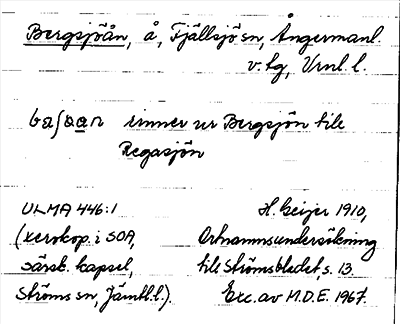 Bergsjöån, å, Fjällsjö sn, Ångermanl.
v. tg, Vrnl. l.
rinner ur Bergsjön till
Regasjön
ULMA 446:1
(xerokop. i SOA,
särsk. kapsel,
Ströms sn, Jämtl. l.).
H. Geijer 1910,
Ortnamnsundersökning
till Strömsbladet, s. 13.
Exc. av M.D.E. 1967.